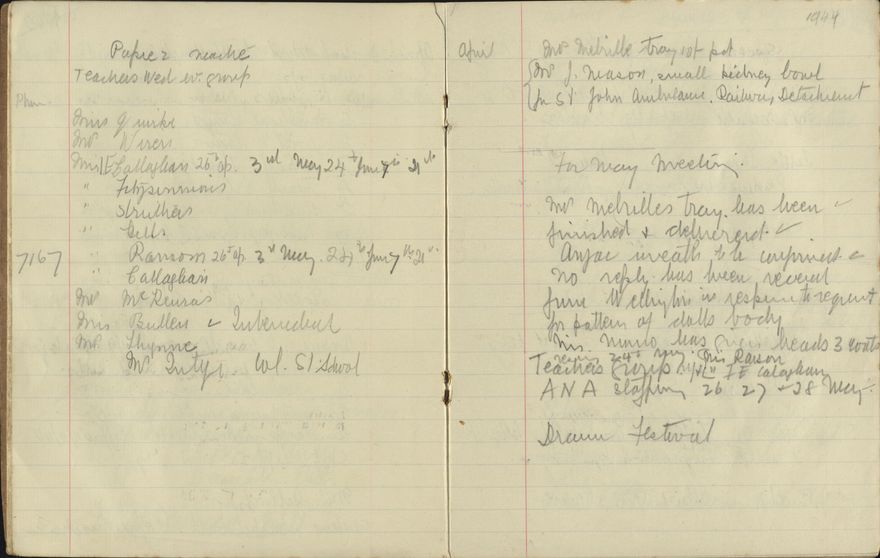 Papier mache
Teachers Wed ev. group
Phone.
Miss Quirke
Mrs
Miss E Callaghan 26th Ap. 3rd May 24th June 7th 21st
" Fitzsimmons
" Struthers
" Gells
7167 " Ransom 26th Ap. 3rd May. 24th June 7th 21st
" Callaghan
Mrs
Miss Buller Intermediate
Mr Thynne
Mr Wl. St School
1944
April Mrs Melville tray 1 pot
Mr J. Mason, small kidney bowl
for St John Ambulance. Railway Detachment
For May Meeting.
Mrs Melvilles tray has been
finished & delivered.
Anzac wreath to be
no reply has been received
from Wellington in response to request
for pattern of dolls body
Mrs has heads 3 coats
24th May. Miss
Teachers Group E Callaghan
ANA 26 27 & 28 May.
Drama Festival